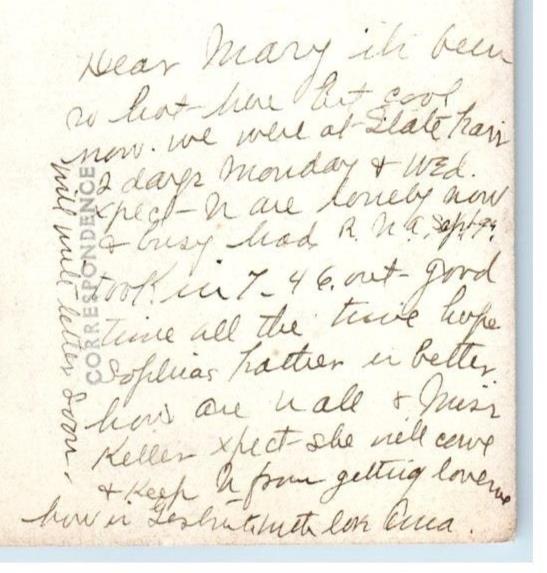 Dear Mary its been
so hot here but cool
now. we were at State Fair
2 days Monday & Wed.
xpect U are lonely now
& busy had R. N. A. Sept 9
took in 7 - 46 out - good
time all the time hope
Sophias Father is better
how are U all & Miss
Keller xpect she will come
& keep U from getting lonesome
how is with love
will write letter soon.
CORRESPONDENCE